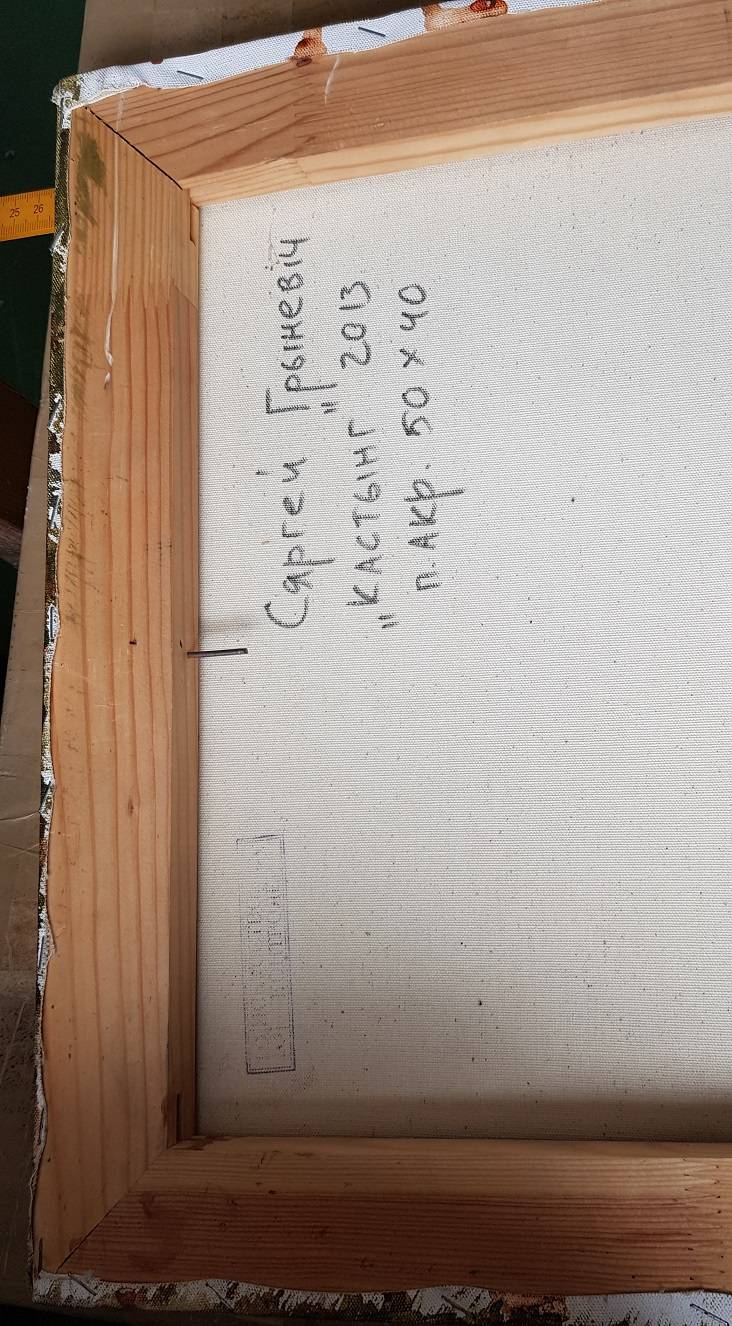 Сяргей Грыневіч
„КАСТЫНГ" 2013
п. Акр. 50 х 40
25 26